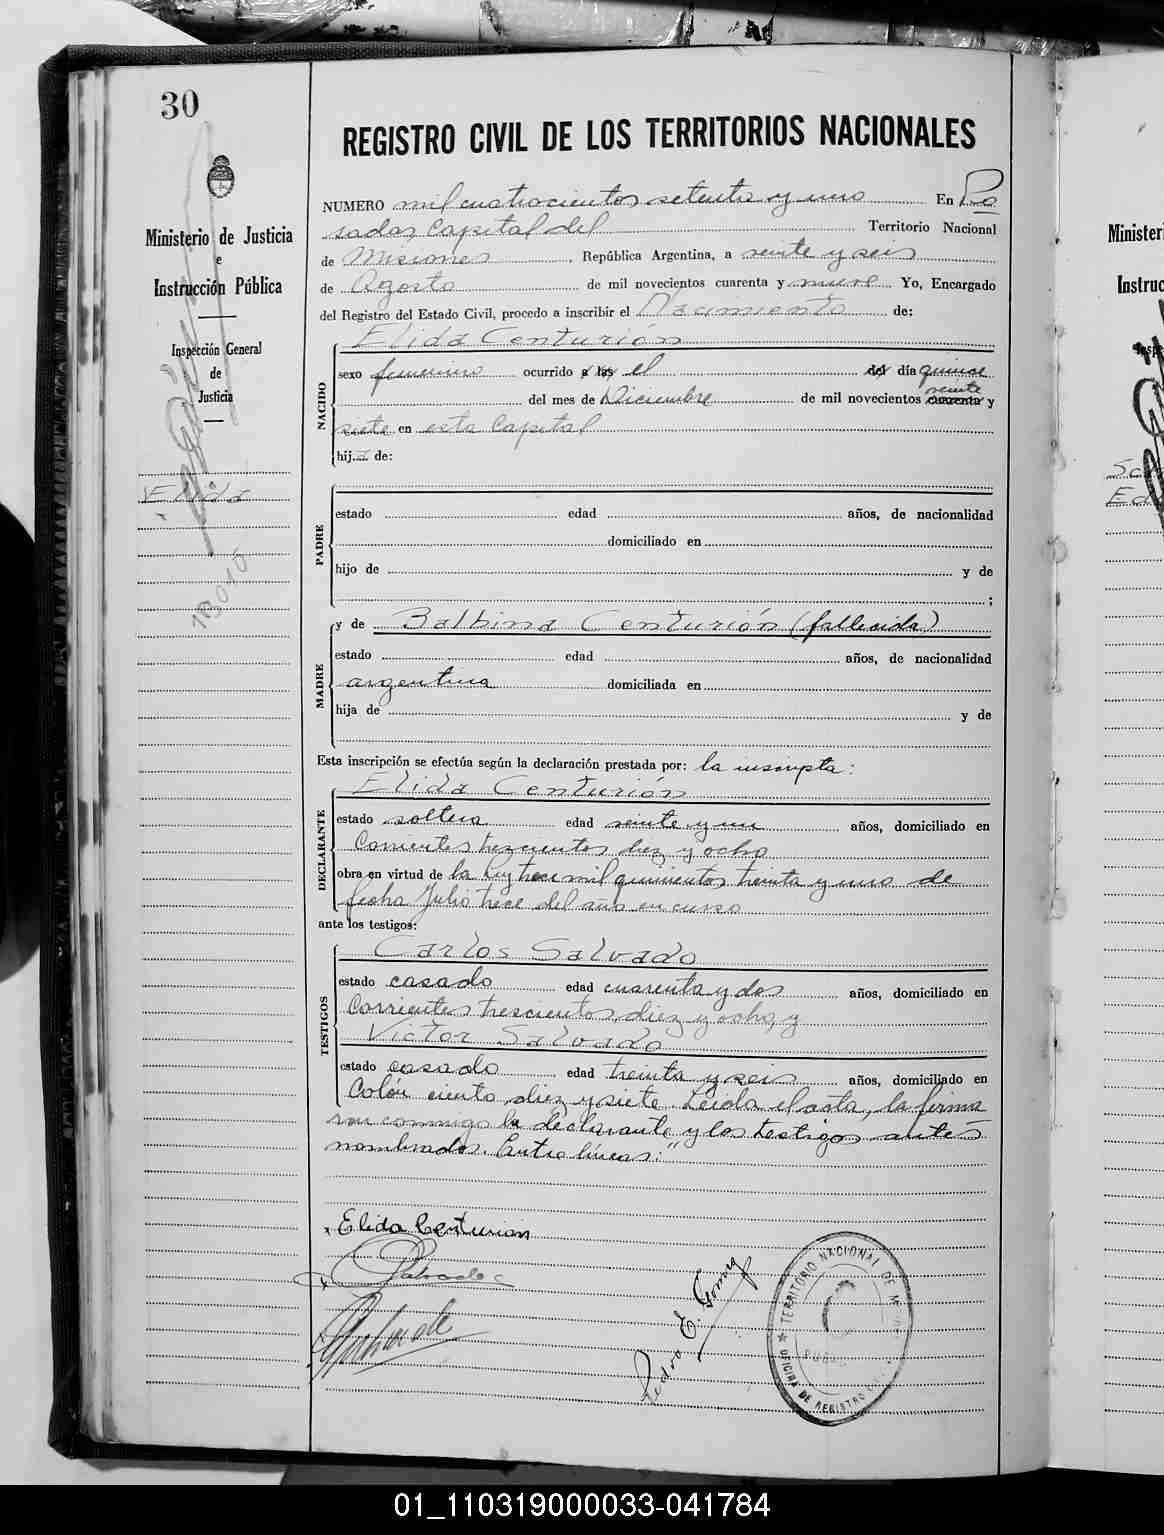 30
REGISTRO CIVIL DE LOS TERRITORIOS NACIONALES
Ministerio de Justicia
e
Instrucción Pública
Inspección General
de
Justicia
Elida
NUMERO mil cuatrocientos setenta y uno En Po
sadas Capital del Territorio Nacional
de Misiones, República Argentina, a veinte y seis
de Agosto de mil novecientos cuarenta y nueve Yo, Encargado
del Registro del Estado Civil, procedo a inscribir el Nacimiento de:
NACIDO
Elida Centurión
sexo femenino ocurrido a las el del día quince
del mes de Diciembre de mil novecientos cuarenta veinte y
siete en esta Capital
hij de:
PADRE
estado edad años, de nacionalidad
domiciliado en
hijo de y de
;
MADRE
y de Balbina Centurión (fallecida)
estado edad años, de nacionalidad
argentina domiciliada en
hija de y de
Esta inscripción se efectúa según la declaración prestada por: la inscripta:
DECLARANTE
Elida Centurión
estado soltera edad veinte y un años, domiciliado en
Corrientes trescientos diez y ocho
obra en virtud de la Ley trece mil quinientos treinta y uno de
fecha Julio trece del año en curso
ante los testigos:
TESTIGOS
Carlos Salvado
estado casado edad cuarenta y dos años, domiciliado en
Corrientes trescientos diez y ocho, y
Victor Salvado
estado casado edad treinta y seis años, domiciliado en
Colón ciento diez y siete. Leida el acta, la firma
ron conmigo la declarante y los testigos antes
nombrados. Entre líneas:
Elida Centurion
Pedro E. Gomez
TERRITORIO NACIONAL DE
OFICINA DE REGISTRO
Minister
Instruc
01_110319000033-041784